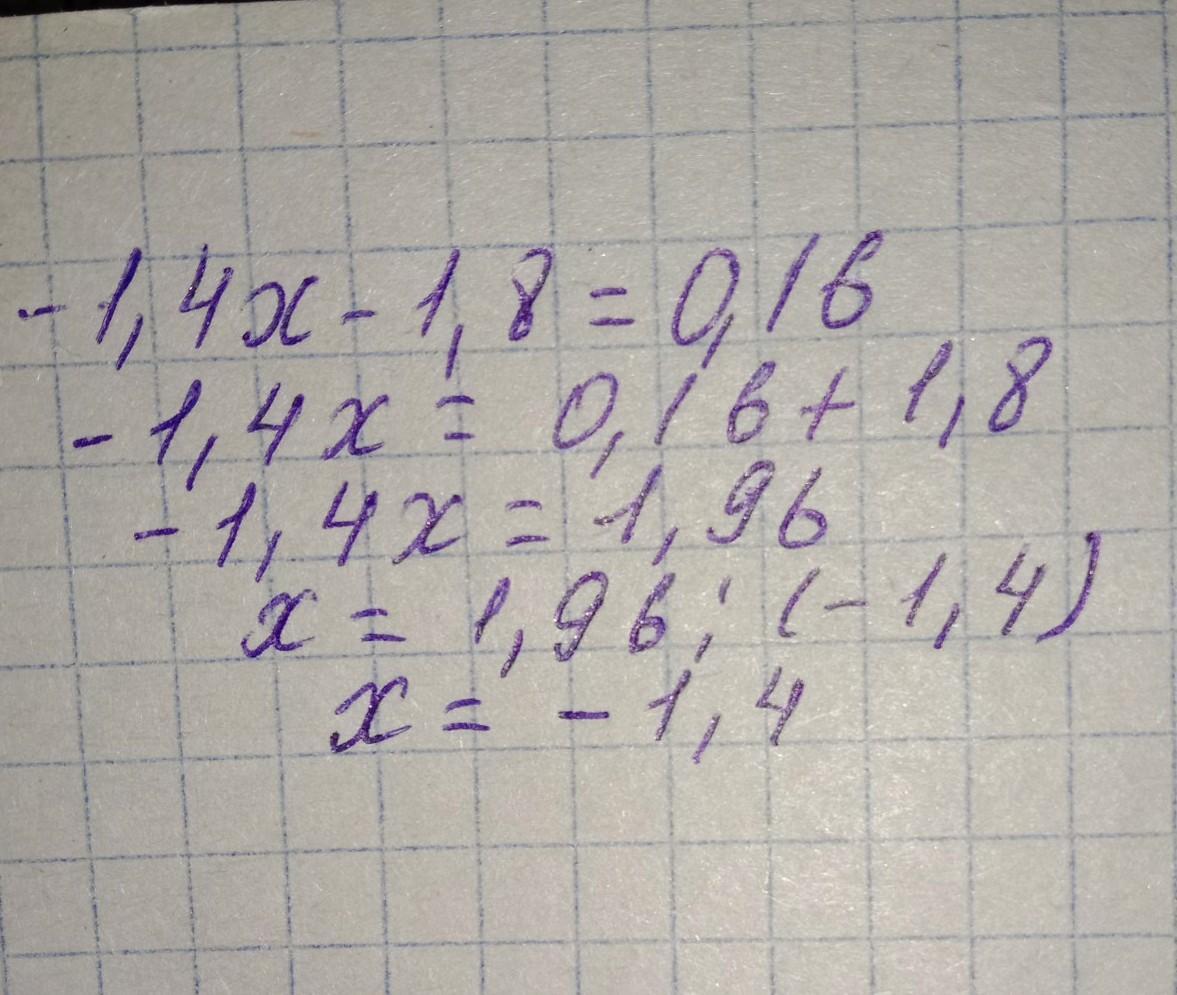 -1,4x-1,8=0,16
-1,4x=0,16+1,8
-1,4x=1,96
x=1,96:(-1,4)
x=-1,4